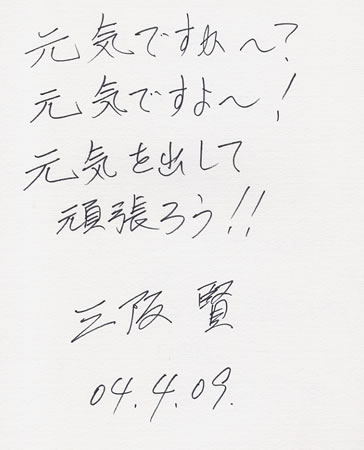 元気ですか～?
元気ですよ～!
元気を出して
頑張ろう!!
三阪 賢
04.4.09.